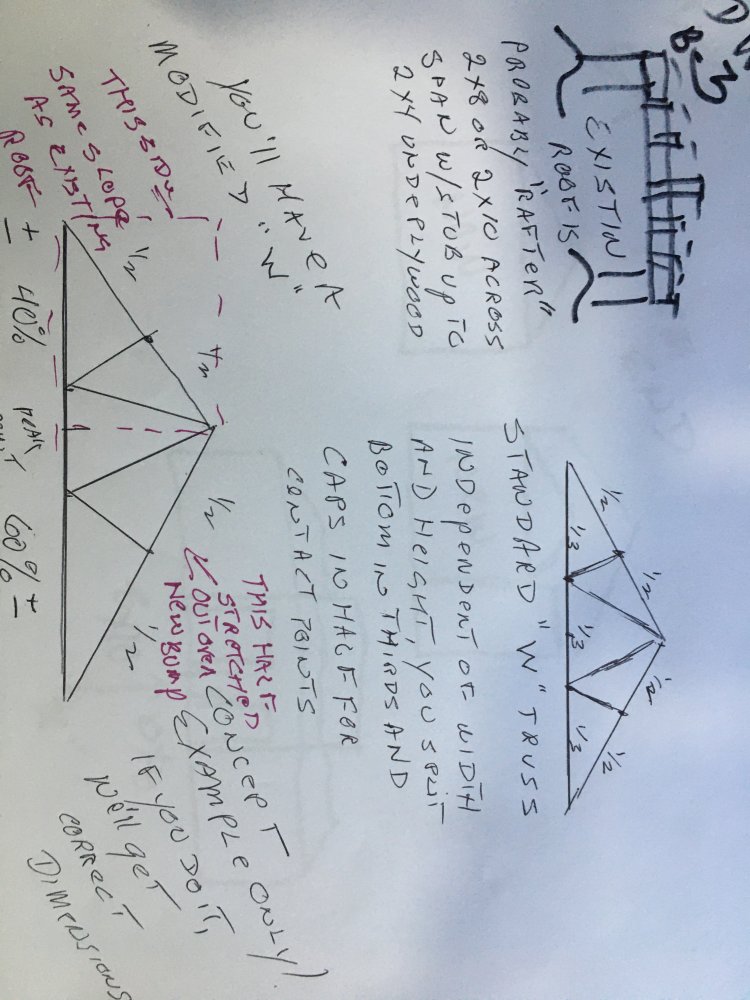 B-3
EXISTIN
ROOF IS
PROBABLY "RAFTER"
2x8 OR 2x10 ACROSS
SPAN W/STUB UP TO
2x4 UNDEPLYWOOD
1/2
1/2
1/2
1/2
1/3
1/3
1/3
STANDARD "W" TRUSS
INDEPENDENT OF WIDTH
AND HEIGHT, YOU SPLIT
BOTTOM IN THIRDS AND
CAPS IN HALF FOR
CONTACT POINTS
YOU'LL HAVE A
MODIFIED "W"
THIS SIDE
SAME SLOPE
AS EXISTING
ROOF
1/2
1/2
1/2
1/2
THIS HALF
STRETCHED
OUT OVER
NEW BUMP
± 40%
PEAK
60% ±
CONCEPT
EXAMPLE ONLY!
IF YOU DO IT,
WE'LL GET
CORRECT
DIMENSIONS